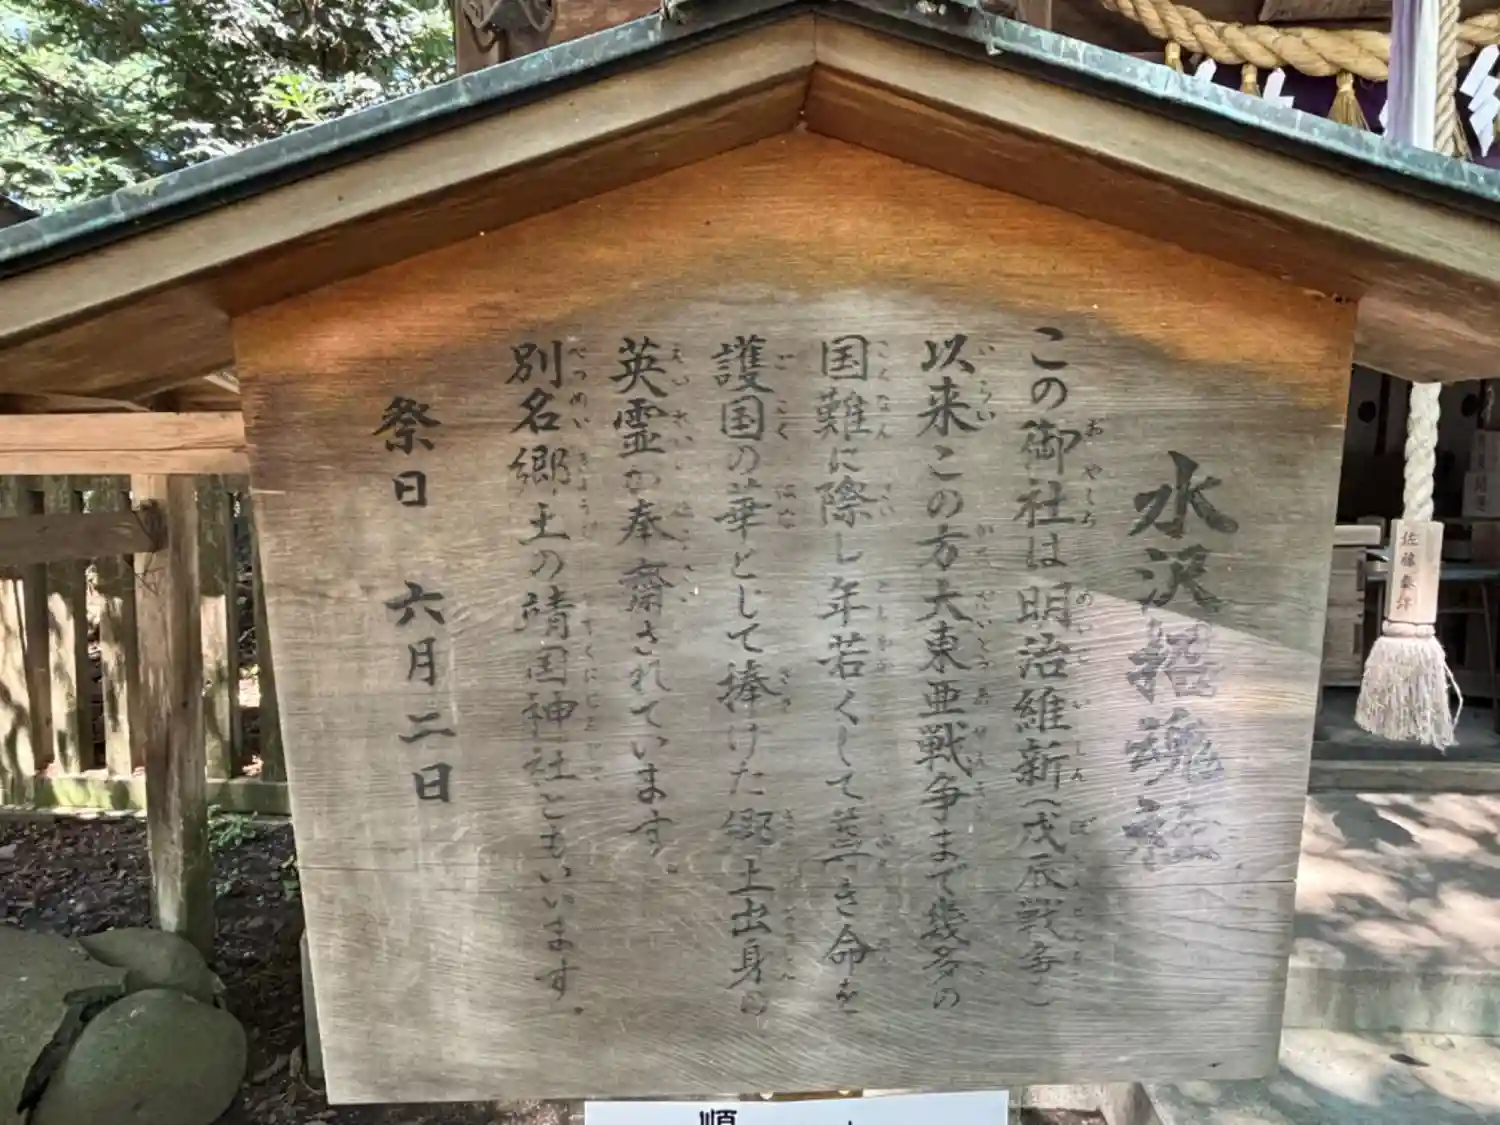 水沢招魂社
この御社は明治維新(戊辰戦争)
以来この方大東亜戦争まで幾多の
国難に際し年若くして尊き命を
護国の華として捧げた郷土出身の
英霊が奉齋されています。
別名郷土の靖国神社ともいいます。
祭日 六月二日
佐藤
順